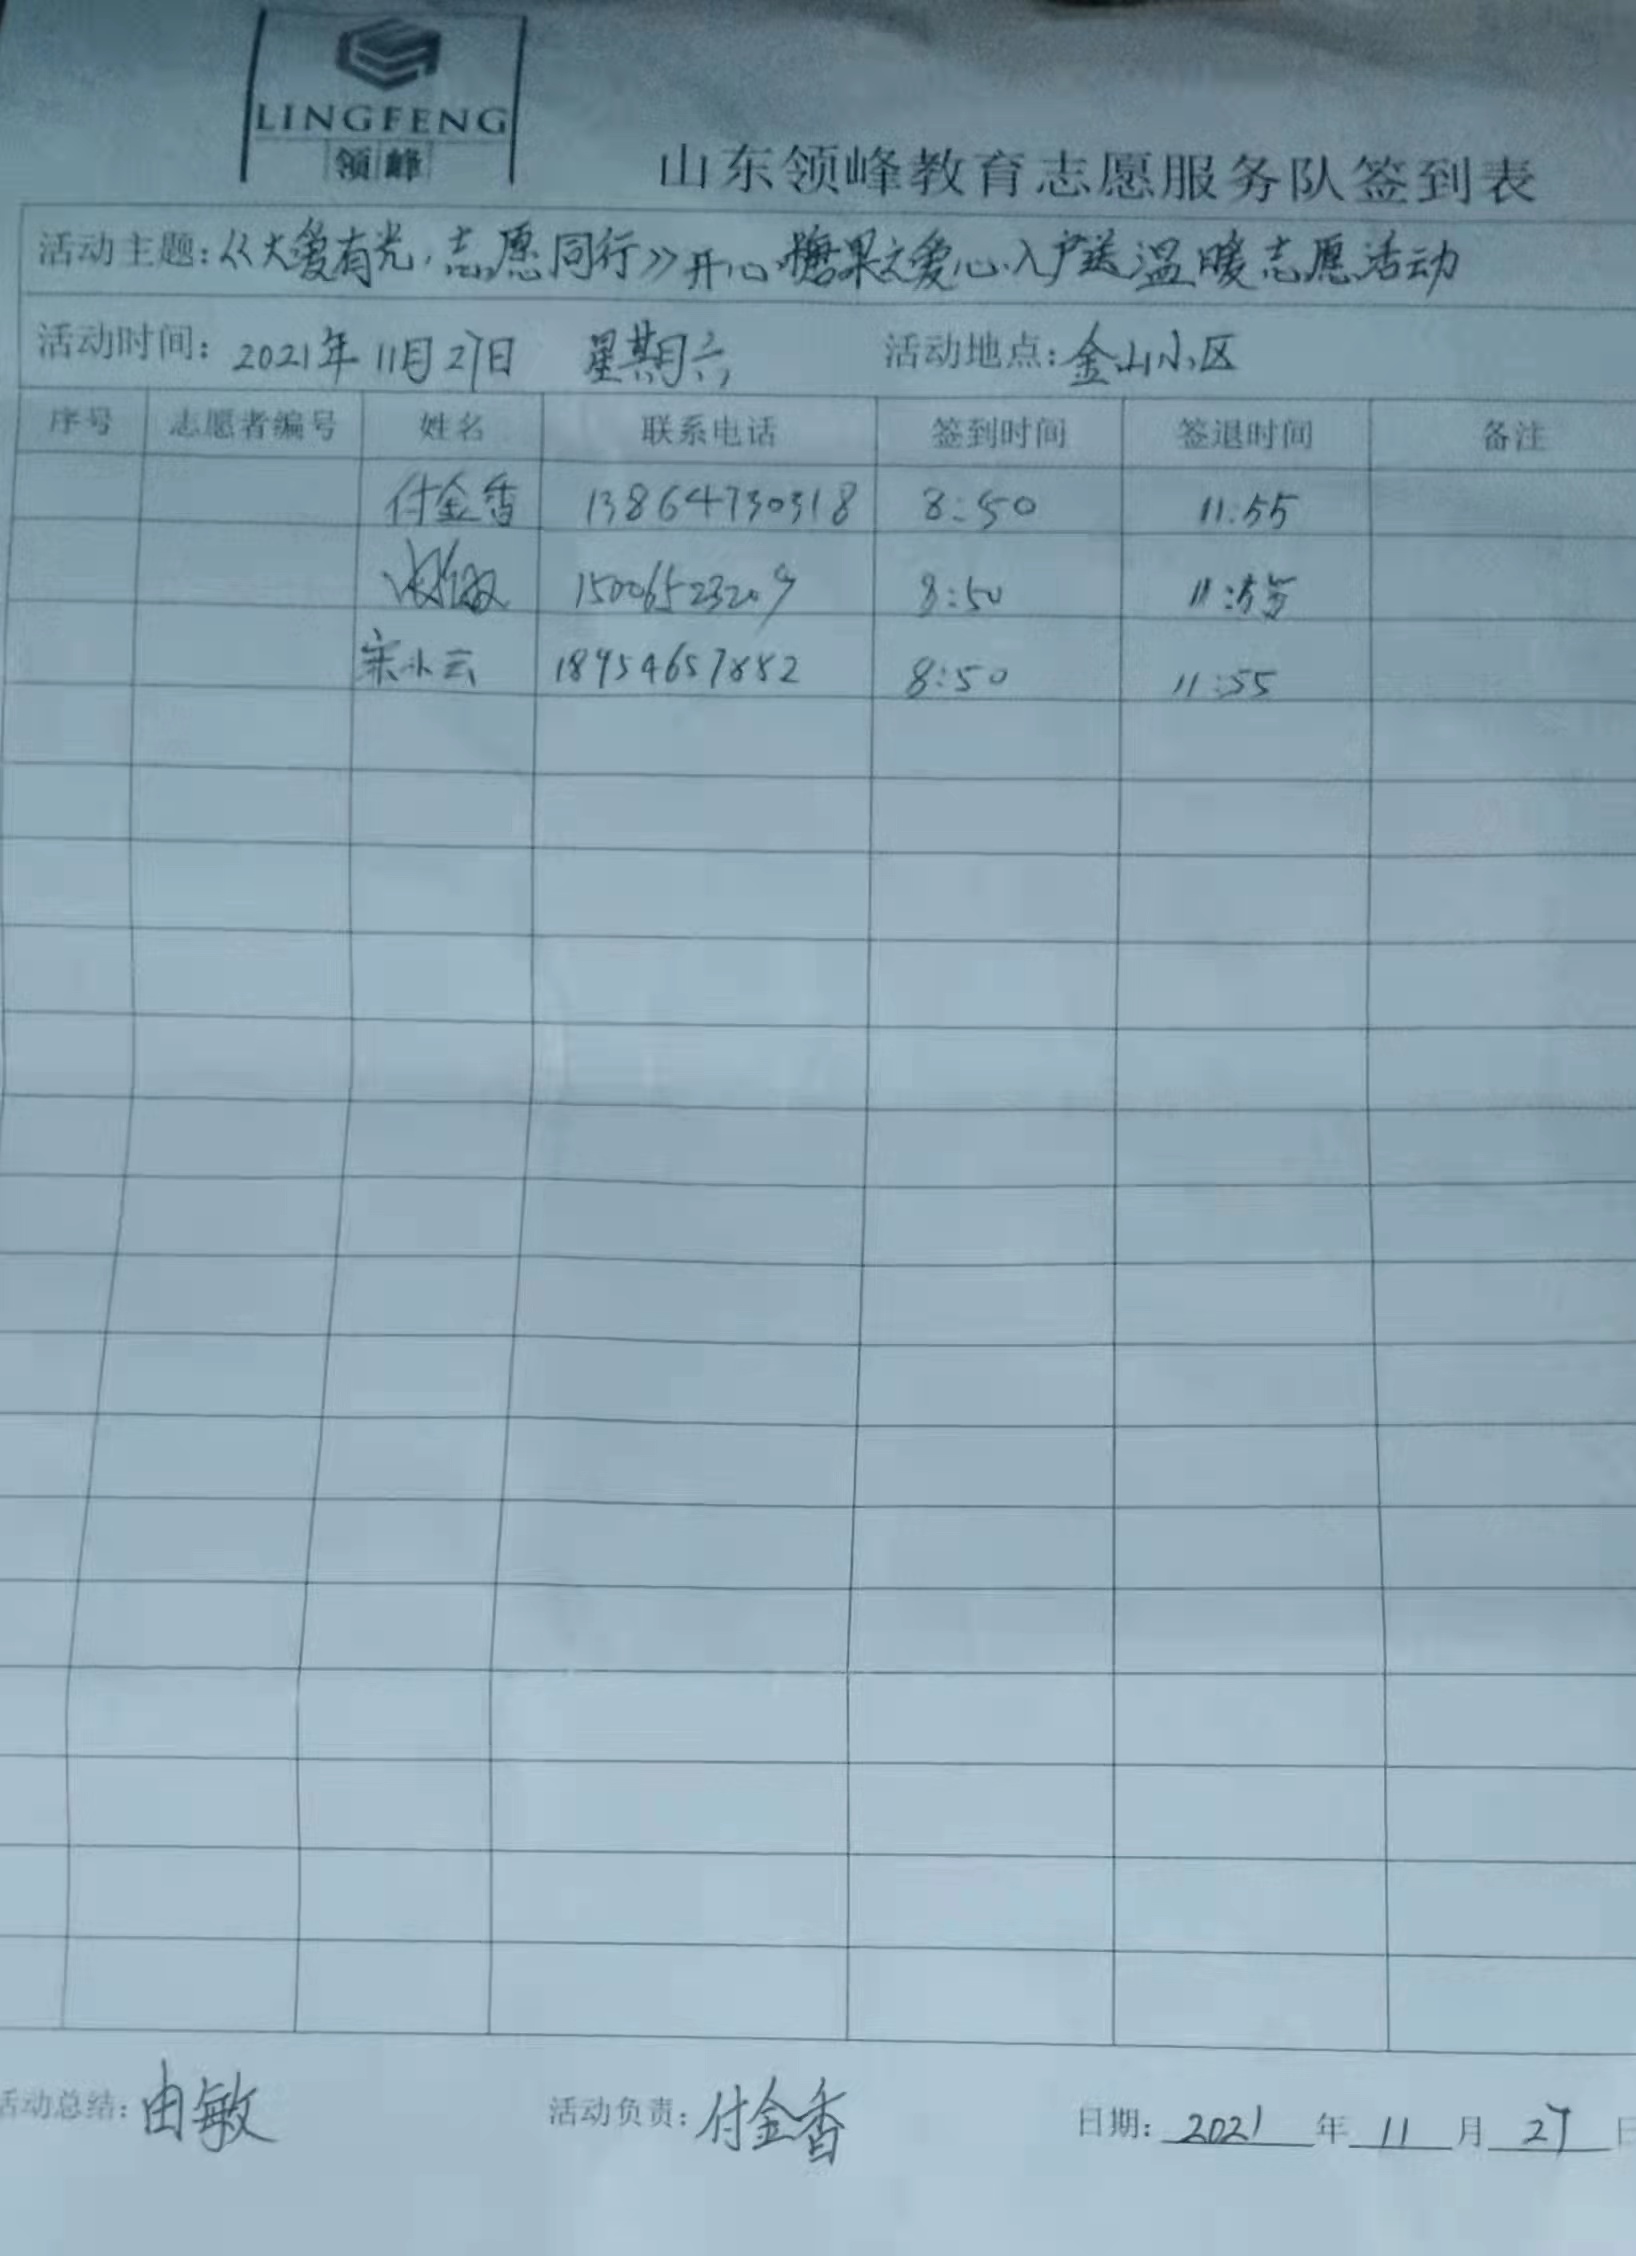 LINGFENG
领峰
山东领峰教育志愿服务队签到表
活动主题:《大爱有光,志愿同行》开心糖果之爱心入户送温暖志愿活动
活动时间: 2021年11月27日 星期六 活动地点:金山小区
序号 志愿者编号 姓名 联系电话 签到时间 签退时间 备注
付金香 13864730318 8:50 11:55
15006523209 8:50 11:55
宋小云 18954657882 8:50 11:55
活动总结: 由敏 活动负责: 付金香 日期: 2021 年 11 月 27 日